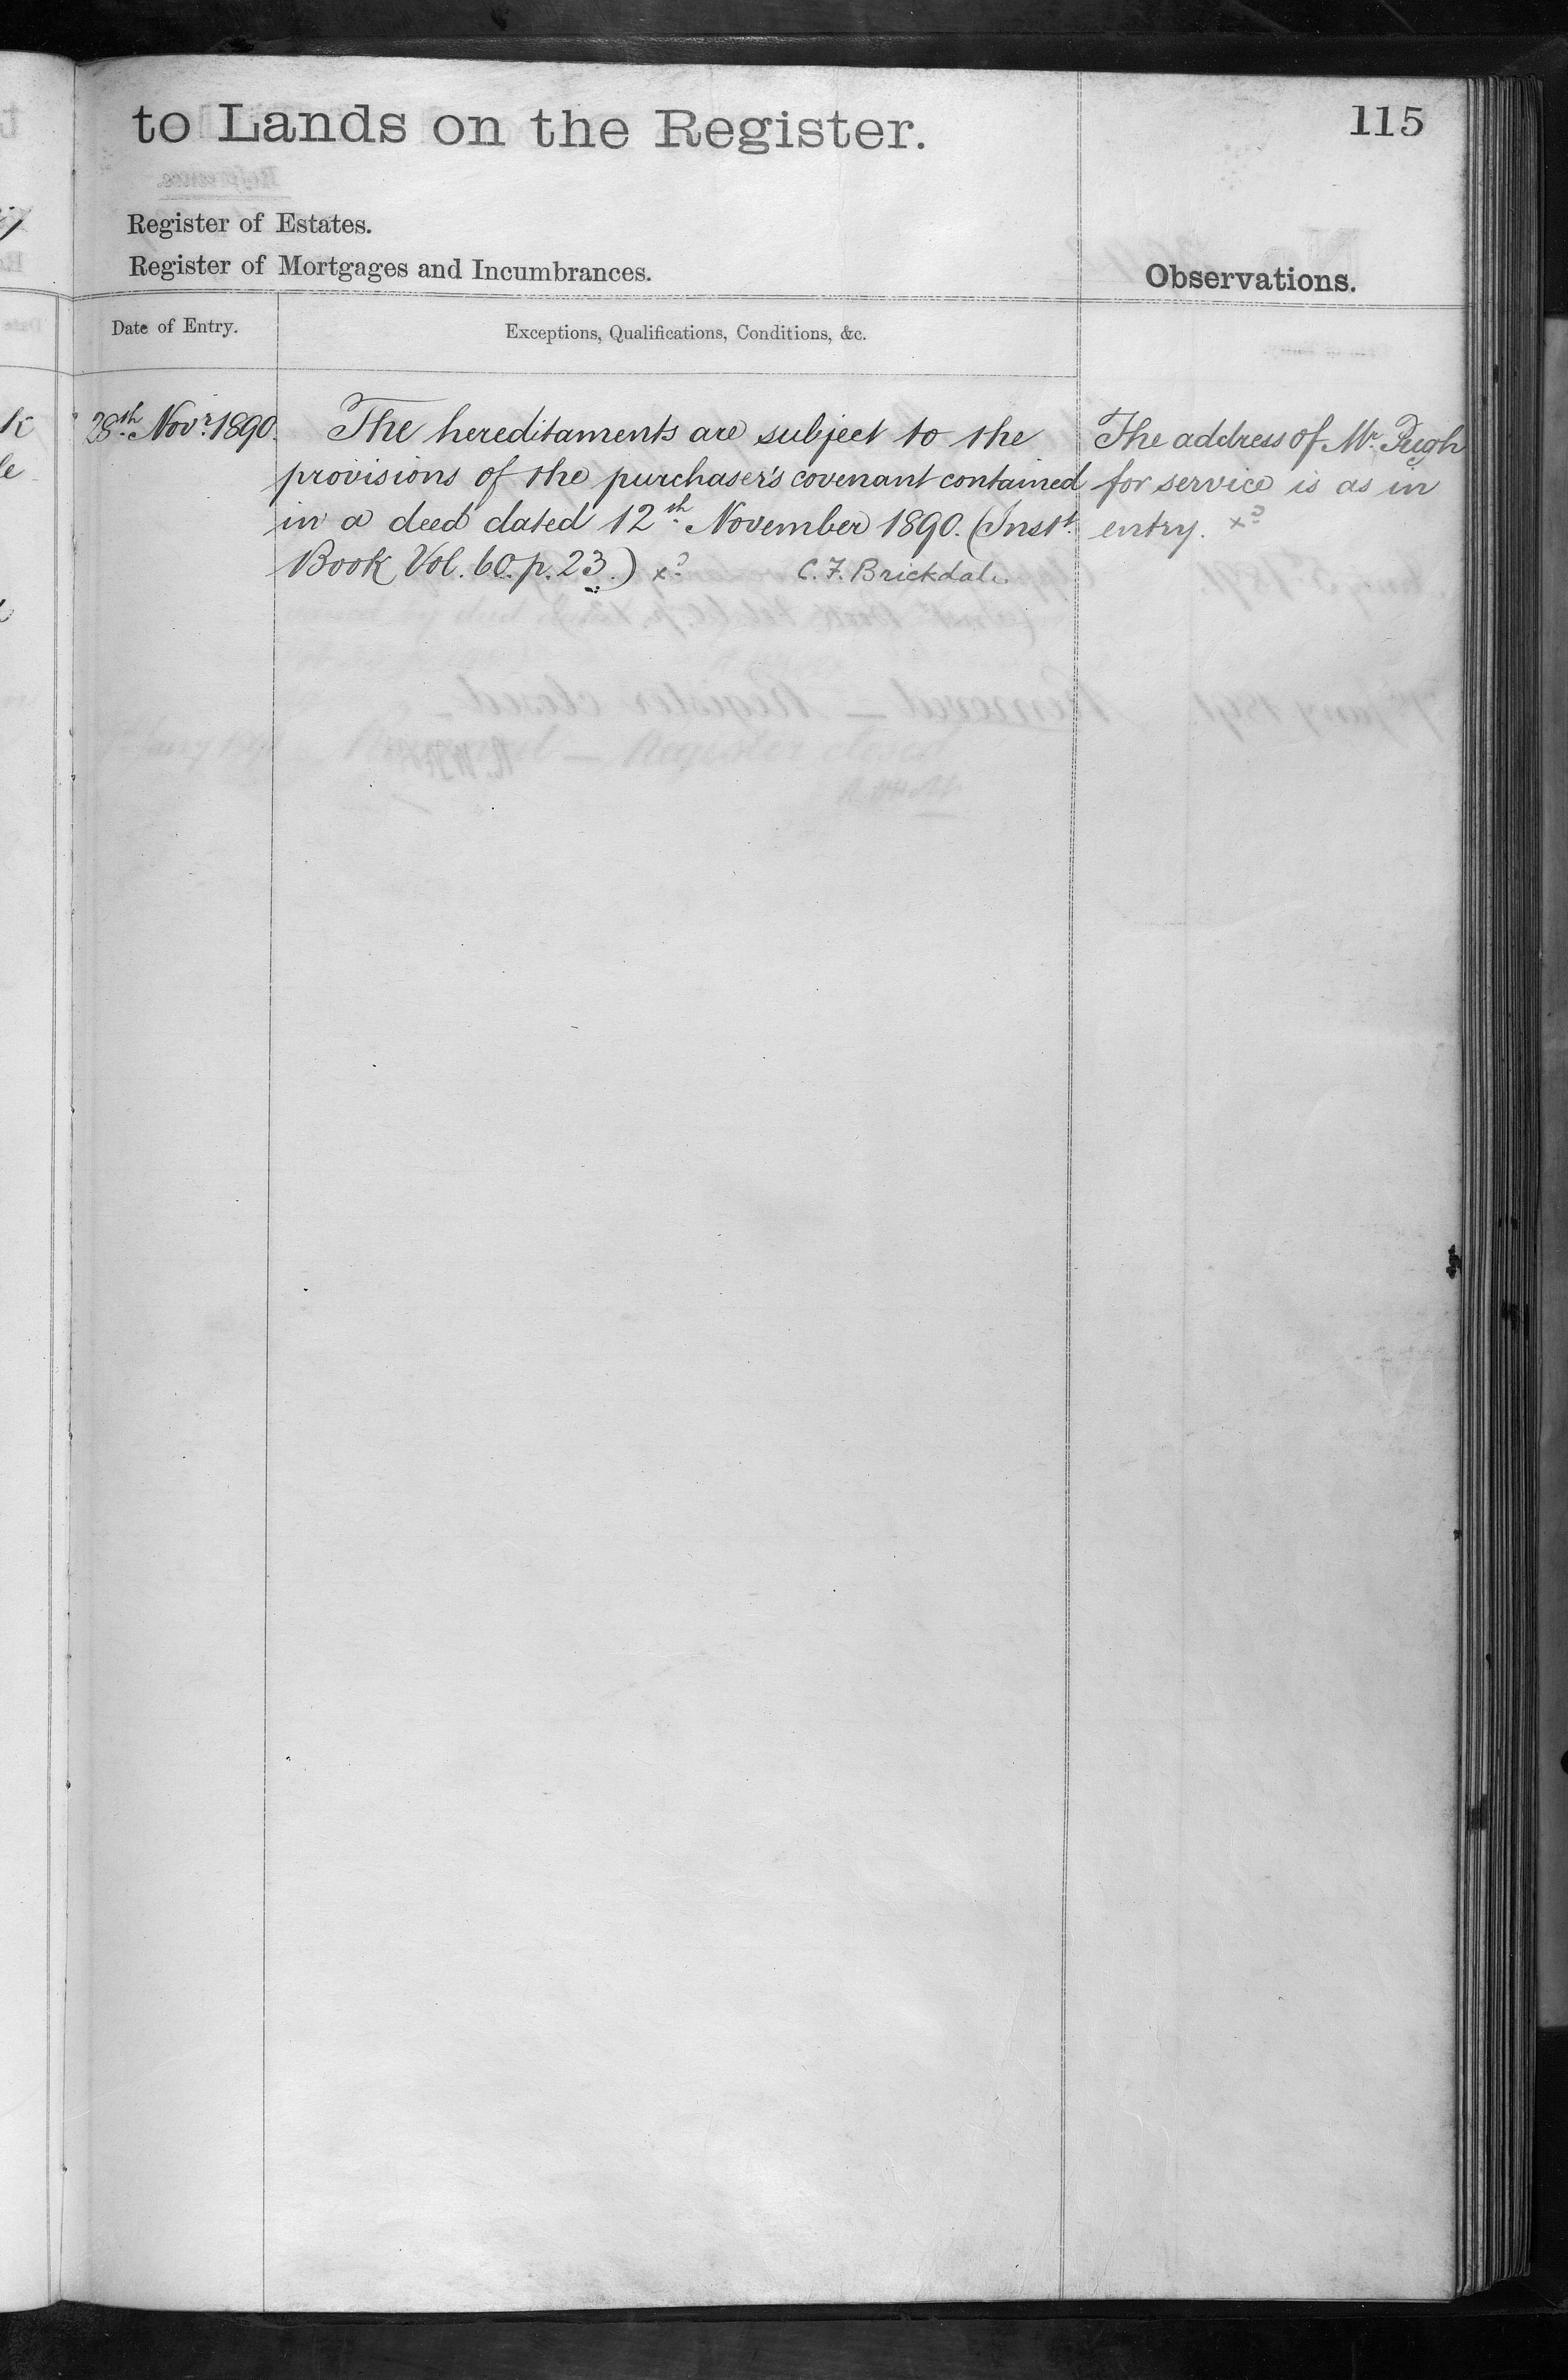 to Lands on the Register.
115
Register of Estates.
Register of Mortgages and Incumbrances.
Observations.
Date of Entry.
Exceptions, Qualifications, Conditions, &c.
28th Novr. 1890.
The hereditaments are subject to the
provisions of the purchaser's covenant contained
in a deed dated 12th November 1890. (Instt.
Book Vol. 60. p. 23.)
C. F. Brickdale
The address of Mr. Pugh
for service is as in
entry.
Removed — Register closed